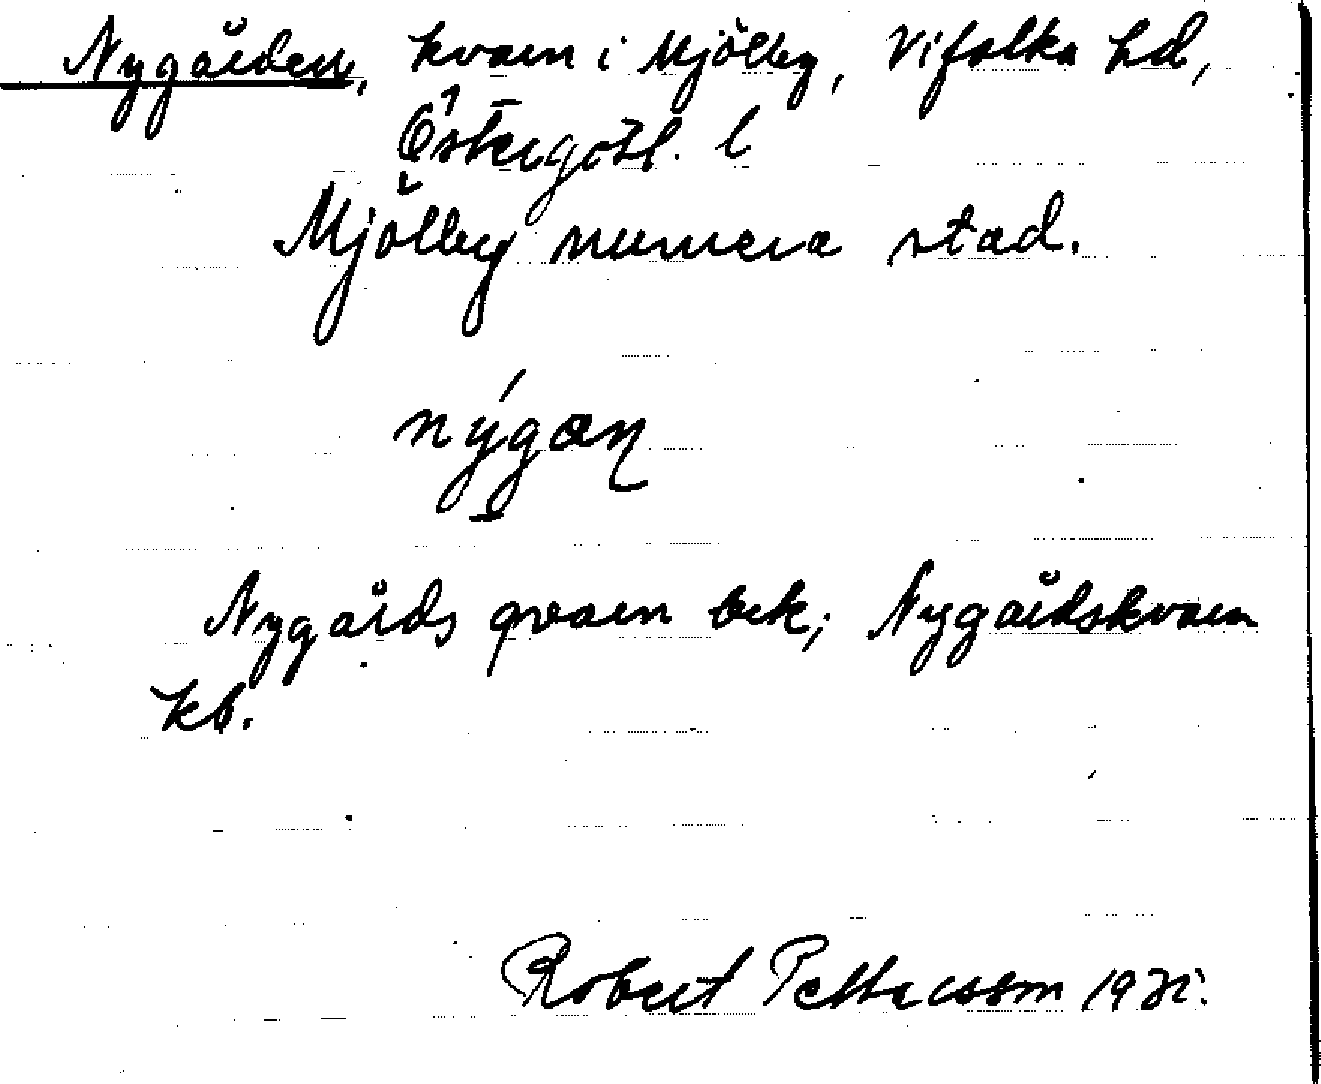 Nygården, kvarn i Mjölby, Vifolka hd,
Östergötl. l
Mjölby numera stad.
nýgaɳ
Nygårds qvarn bek; Nygårdskvarn
kb.
Robert Pettersson